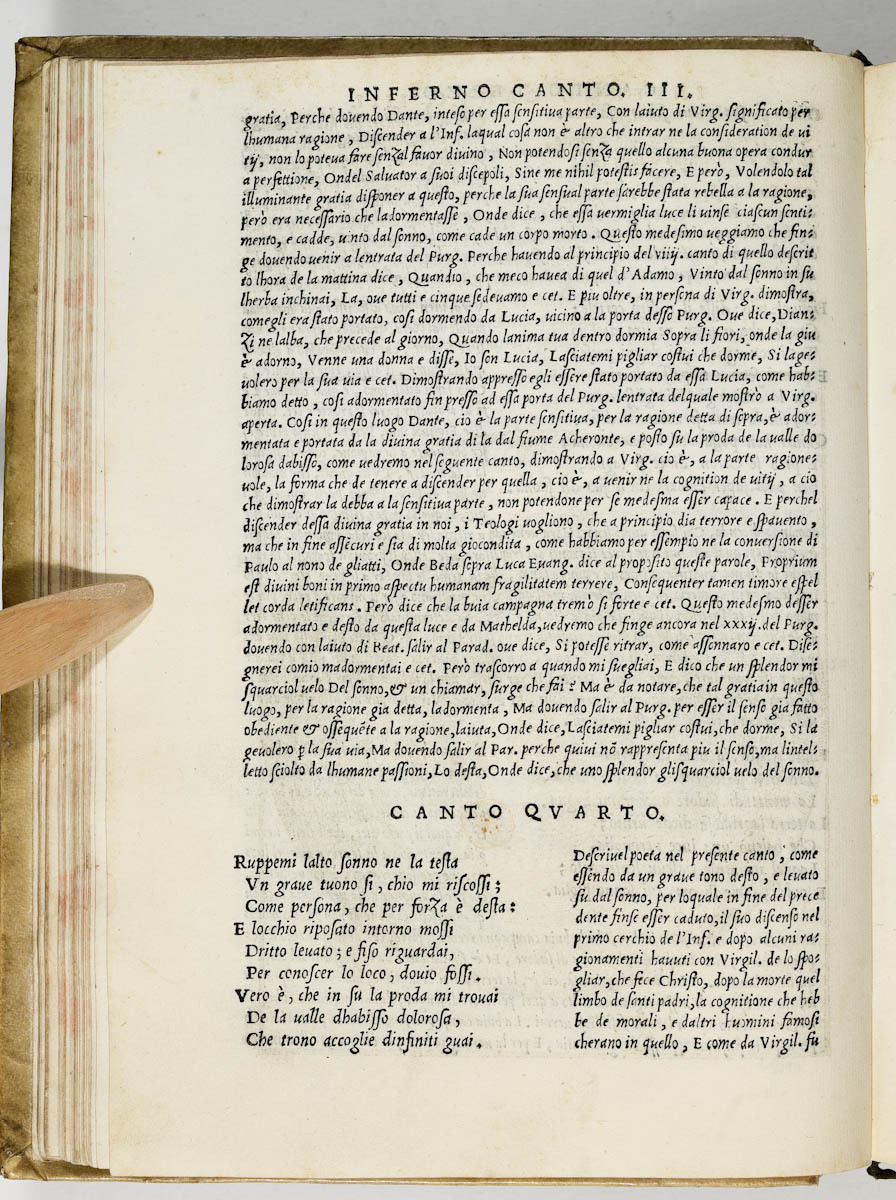 INFERNO CANTO. III.
gratia, Perche dovendo Dante, inteso per essa sensitiua parte, Con laiuto di Virg. significato per
lhumana ragione, Discender a l'Inf. laqual cosa non è altro che intrar ne la consideration de ui
tij, non lo poteua fare senzal fauor diuino, Non potendosi senza quello alcuna buona opera condur
a perfettione, Ondel Saluator a suoi discepoli, Sine me nihil potestis facere, E però, Volendolo tal
illuminante gratia disponer a questo, perche la sua sensual parte sarebbe stata rebella a la ragione,
però era necessario che ladormentasse, Onde dice, che essa uermiglia luce li uinse ciascun senti-
mento, e cadde, uinto dal sonno, come cade un corpo morto. Questo medesimo ueggiamo che fin-
ge douendo uenir a lentrata del Purg. Perche hauendo al principio del viiij. canto di quello descrit
to lhora de la mattina dice, Quandio, che meco hauea di quel d'Adamo, Vinto dal sonno in su
lherba inchinai, La, oue tutti e cinque sedeuamo e cet. E piu oltre, in persona di Virg. dimostra,
comegli era stato portato, cosi dormendo da Lucia, uicino a la porta desso Purg. Oue dice, Dian-
zi ne lalba, che precede al giorno, Quando lanima tua dentro dormia Sopra li fiori, onde la giu
è adorno, Venne una donna e disse, Io son Lucia, Lasciatemi pigliar costui che dorme, Si lage-
uolero per la sua uia e cet. Dimostrando appresso egli essere stato portato da essa Lucia, come hab-
biamo detto, cosi adormentato fin presso ad essa porta del Purg. lentrata delquale mostrò a Virg.
aperta. Cosi in questo luogo Dante, cio è la parte sensitiua, per la ragione detta di sopra, è ador-
mentata e portata da la diuina gratia di la dal fiume Acheronte, e posto su la proda de la ualle do
lorosa dabisso, come uedremo nel seguente canto, dimostrando a Virg. cio è, a la parte ragione-
uole, la forma che de tenere a discender per quella, cio è, a uenir ne la cognition de uitij, a cio
che dimostrar la debba a la sensitiua parte, non potendone per se medesma esser capace. E perchel
discender dessa diuina gratia in noi, i Teologi uogliono, che a principio dia terrore e spauento,
ma che in fine assecuri e sia di molta giocondita, come habbiamo per essempio ne la conuersione di
Paulo al nono de gliatti, Onde Beda sopra Luca Euang. dice al proposito queste parole, Proprium
est diuini boni in primo aspectu humanam fragilitatem terrere, Consequenter tamen timore expel
let corda letificans. Però dice che la buia campagna tremò si forte e cet. Questo medesmo desser
adormentato e desto da questa luce e da Mathelda, uedremo che finge ancora nel xxxij. del Purg.
douendo con laiuto di Beat. salir al Parad. oue dice, Si potesse ritrar, come assennaro e cet. Dise-
gnerei comio madormentai e cet. Però trascorro a quando mi suegliai, E dico che un splendor mi
squarciol uelo Del sonno, & un chiamar, surge che fai? Ma è da notare, che tal gratia in questo
luogo, per la ragione gia detta, ladormenta, Ma douendo salir al Purg. per esser il senso gia fatto
obediente & ossequẽte a la ragione, laiuta, Onde dice, Lasciatemi pigliar costui, che dorme, Si la
geuolero ꝑ la sua uia, Ma douendo salir al Par. perche quiui nõ rappresenta piu il senso, ma lintel-
letto sciolto da lhumane passioni, Lo desta, Onde dice, che uno splendor glisquarciol uelo del sonno.
CANTO QVARTO.
Ruppemi lalto sonno ne la testa
Vn graue tuono si, chio mi riscossi;
Come persona, che per forza è desta:
E locchio riposato intorno mossi
Dritto leuato; e fiso riguardai,
Per conoscer lo loco, douio fossi.
Vero è, che in su la proda mi trouai
De la ualle dhabisso dolorosa,
Che trono accoglie dinfiniti guai.
Descriuel poeta nel presente canto, come
essendo da un graue tono desto, e leuato
su dal sonno, per loquale in fine del prece
dente finse esser caduto, il suo discenso nel
primo cerchio de l'Inf. e dopo alcuni ra-
gionamenti hauuti con Virgil. de lo spo-
gliar, che fece Christo, dopo la morte quel
limbo de santi padri, la cognitione che heb
be de morali, e daltri huomini famosi
cherano in quello, E come da Virgil. fu